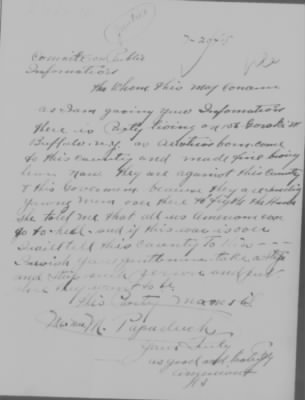 7-29-18
Committe on Public
Information
tho Whom this may Concarn
as I am gaving your Information
there is Party living on
Buffalo N.Y. as Austrian born come
to this Country and made fine living
here now they are against this Country
& this Goverment because they are sending
young men over there to fight the Huns
she told me that all us Americans can
go to hell and if this war is over
I will tell this Country to Kiss - - -
I wish you gentlemens take a step
and stop such person and put
where they want to be
this Party names is
Papuduck
Yours truly
as good and
American